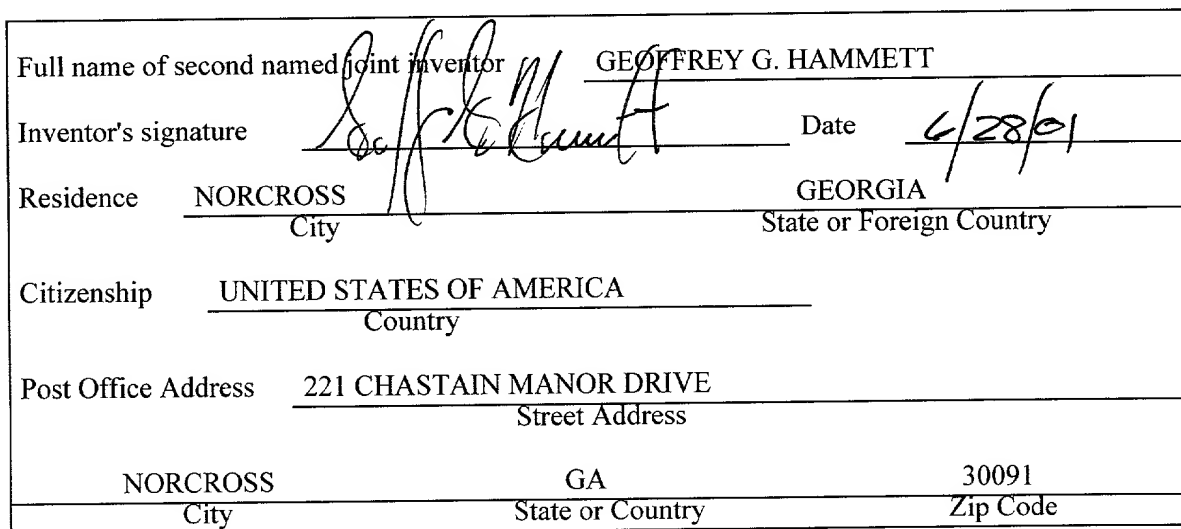 Full name of second named joint inventor GEOFFREY G. HAMMETT
Inventor's signature Date 6/28/01
Residence NORCROSS GEORGIA
City State or Foreign Country
Citizenship UNITED STATES OF AMERICA
Country
Post Office Address 221 CHASTAIN MANOR DRIVE
Street Address
NORCROSS GA 30091
City State or Country Zip Code